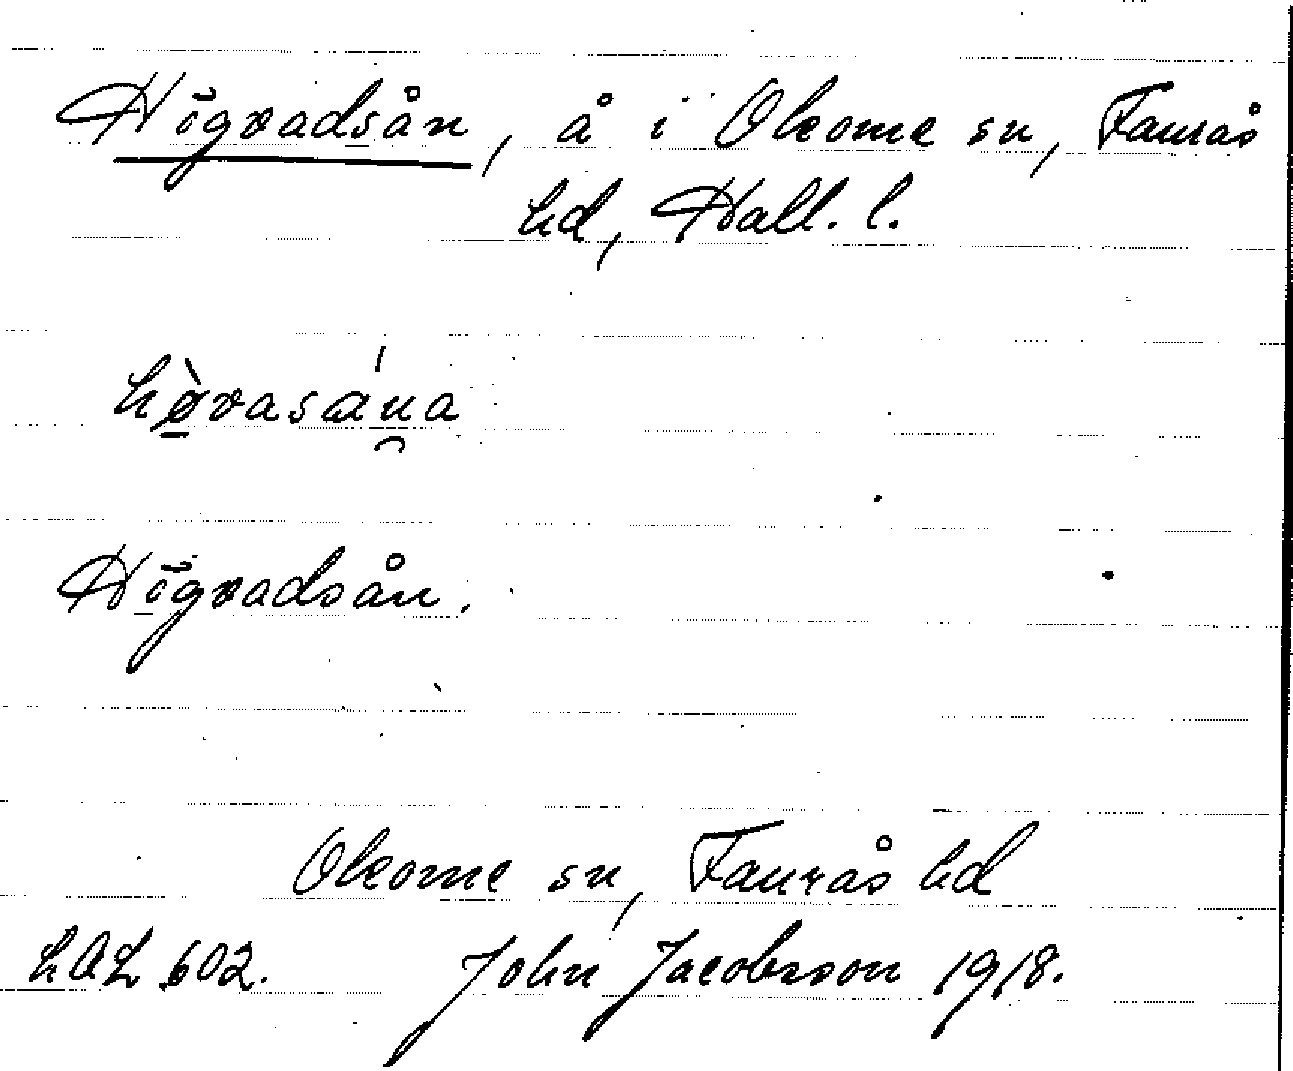 Högvadsån, å i Okome sn, Faurås
hd, Hall. l.
Högvadsån.
Okome sn, Faurås hd
LAL 602. John Jacobsson 1918.